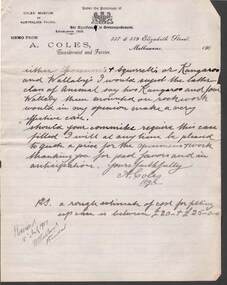 COLES MUSEUM
OF
AUSTRALIAN FAUNA.
Under the Patronage of
MEMO FROM
A. COLES,
Taxidermist and Furrier.
337 & 339 Elizabeth Street,
Melbourne, 190
either & Squirrels or Kangaroo
and Wallaby's I would suggest the latter
class of Animal say two Kangaroo and four
Wallaby these mounted on rock work
would in my opinion make a very
effective case.
Should your committee require this case
filled I will at any time be pleased
to quote a price for the specimens & work
thanking you for past favors and in
anticipation. Yours faithfully
A. Coles
P.S. a rough estimate of cost for fitting
up case is between £20 & £25